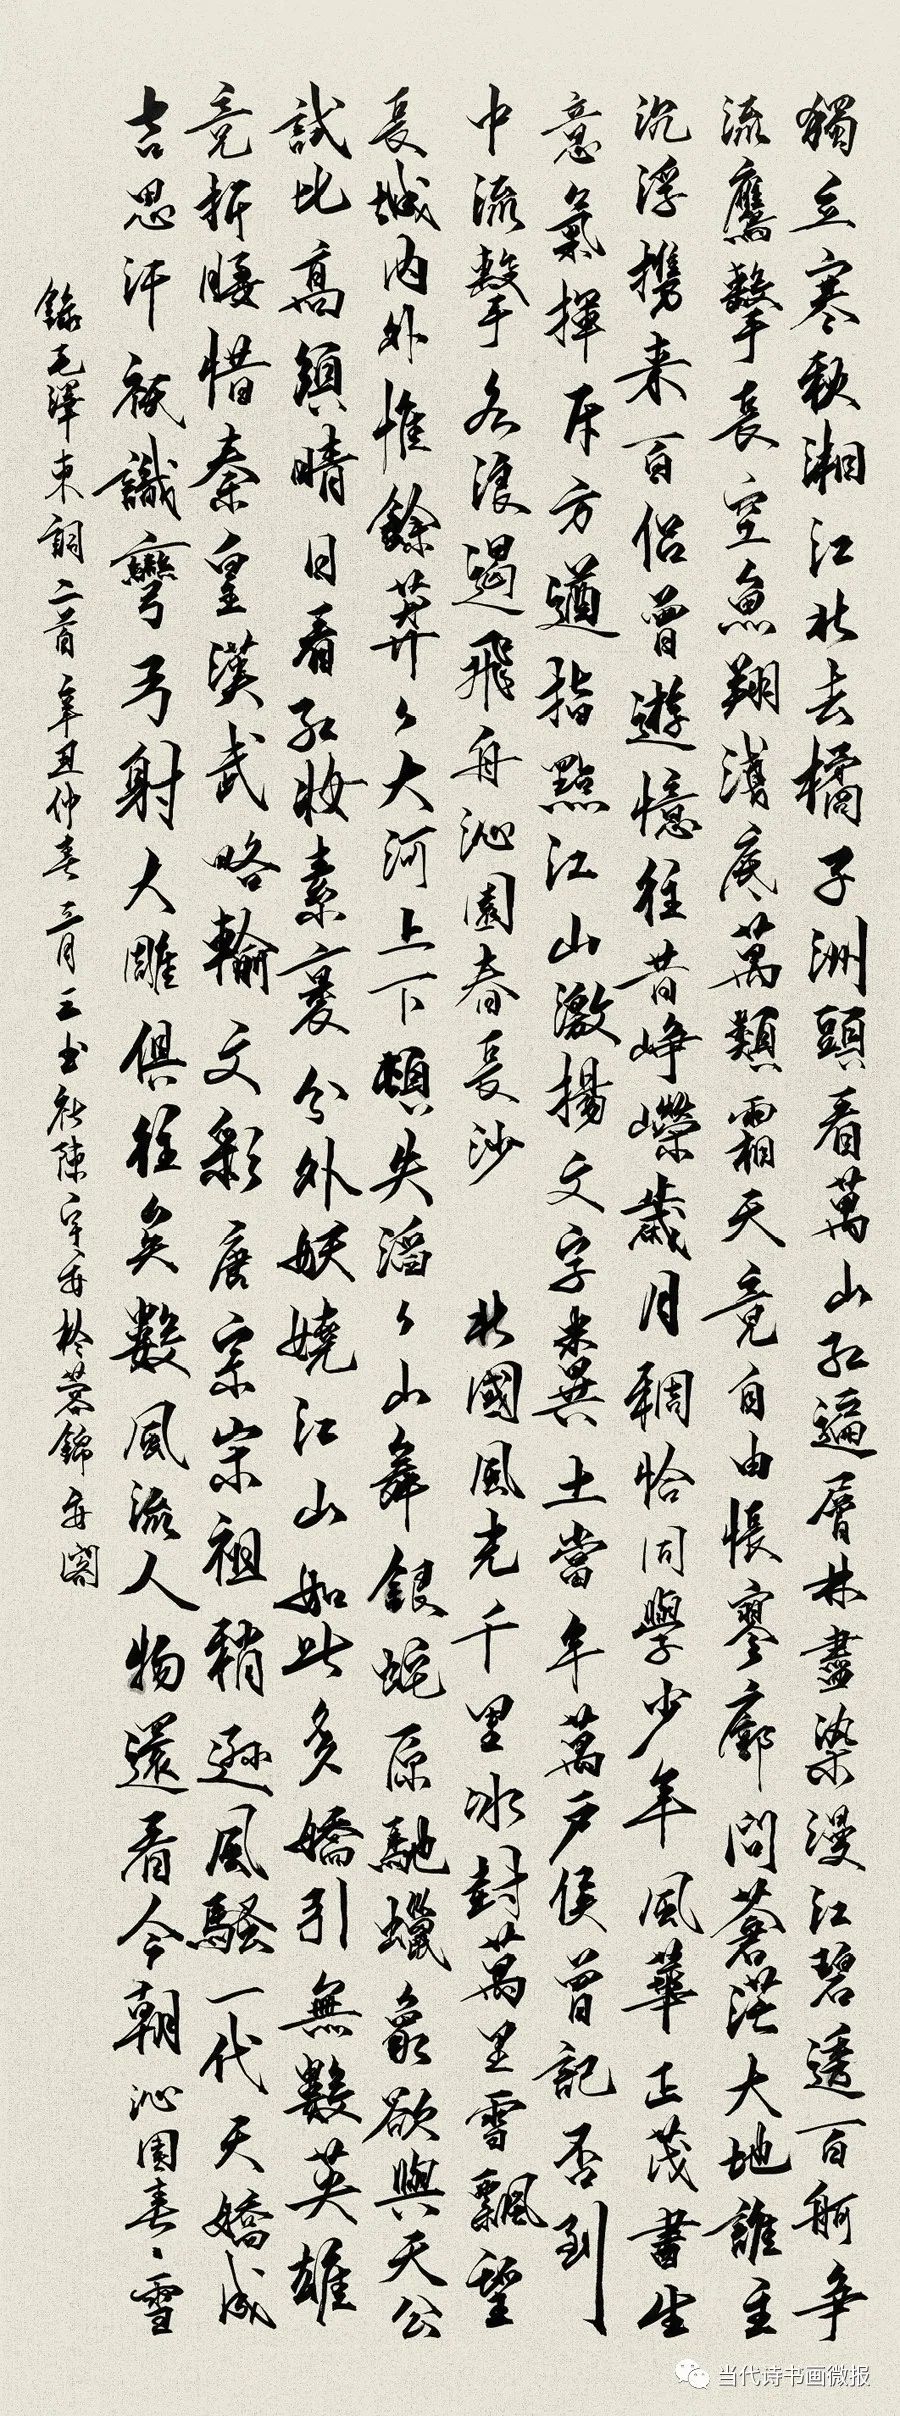 獨立寒秋湘江北去橘子洲頭看萬山紅遍層林盡染漫江碧透百舸爭
流鷹擊長空魚翔淺底萬類霜天竞自由悵寥廓問蒼茫大地誰主
沉浮攜来百侣曾遊憶往昔崢嶸歲月稠恰同學少年風華正茂書生
意氣揮斥方遒指點江山激揚文字糞土當年萬户侯曾記否到
中流擊水浪遏飛舟沁園春長沙 北國風光千里冰封萬里雪飄望
長城内外惟餘莽々大河上下頓失滔々山舞銀蛇原馳蠟象欲與天公
試比高須晴日看紅妝素裹分外妖嬈江山如此多嬌引無數英雄
竞折腰惜秦皇漢武略輸文彩唐宗宋祖稍遜風騷一代天嬌成
吉思汗祇識彎弓射大雕俱往矣數風流人物還看今朝沁園春、雪
錄毛澤東詞二首辛丑仲春三月 書社陳宇 於蓉錦 閣
当代诗书画微报